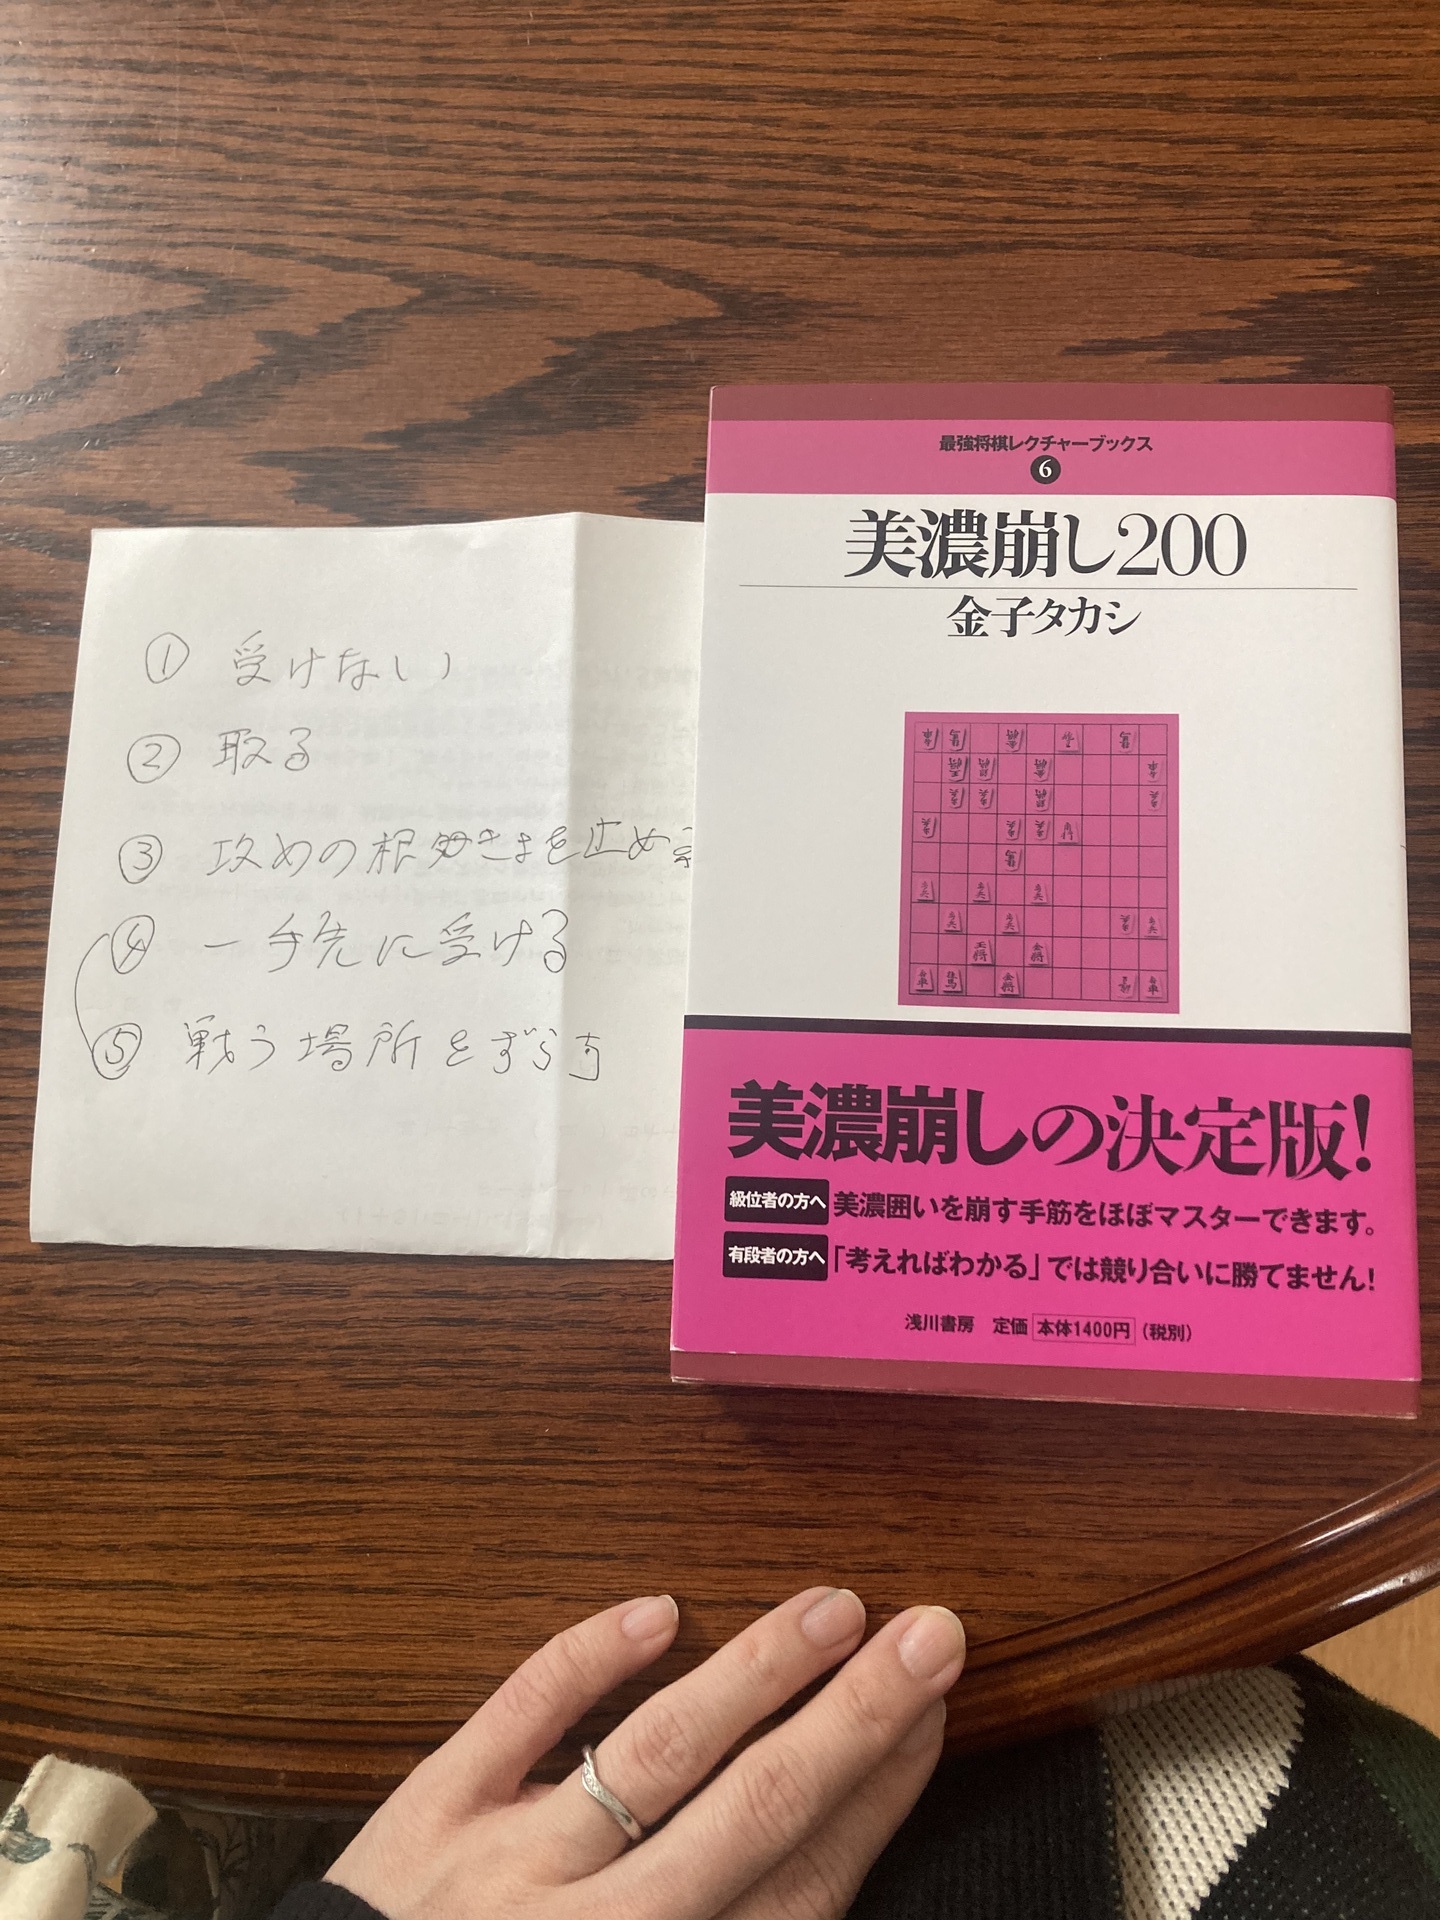 ① 受けない
② 取る
③ 攻めの根
④ 一手先に受ける
⑤ 戦う場所をずらす
最強将棋レクチャーブックス
6
美濃崩し200
金子タカシ
美濃崩しの決定版!
級位者の方へ 美濃囲いを崩す手筋をほぼマスターできます。
有段者の方へ 「考えればわかる」では競り合いに勝てません!
浅川書房 定価 本体1400円 (税別)